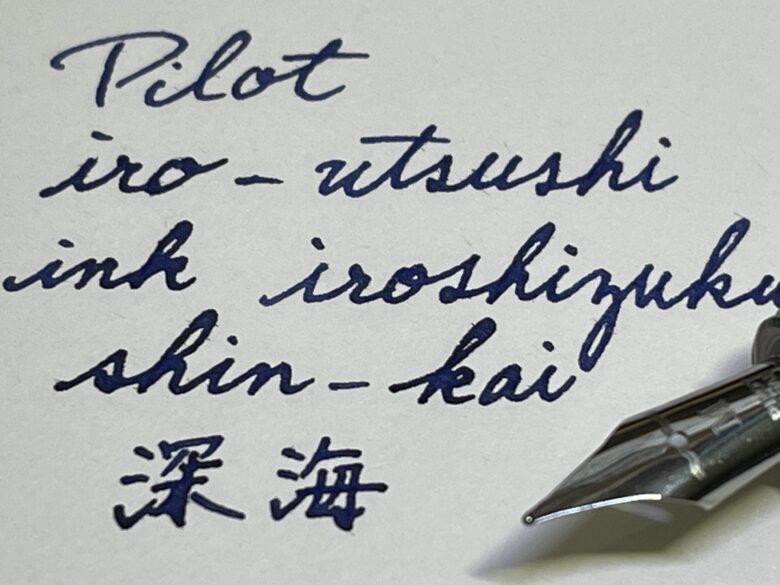 Pilot
iro-utsushi
ink iroshizuku
shin-kai
深海